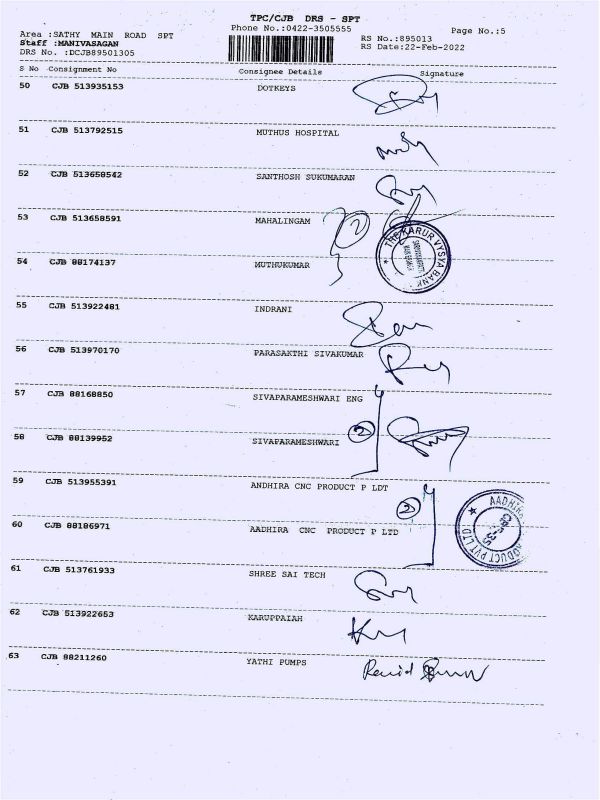 TPC/CJB DRS - SPT
Phone No.:0422-3505555
Page No.:5
Area :SATHY MAIN ROAD SPT
Staff :MANIVASAGAN
RS No.:895013
DRS No. :DCJB89501305
RS Date:22-Feb-2022
S No Consignment No Consignee Details Signature
50 CJB 513935153 DOTKEYS
51 CJB 513792515 MUTHUS HOSPITAL
52 CJB 513658542 SANTHOSH SUKUMARAN
53 CJB 513658591 MAHALINGAM 2
THE KARUR VYSYA BANK
54 CJB 88174137 MUTHUKUMAR
55 CJB 513922481 INDRANI
56 CJB 513970170 PARASAKTHI SIVAKUMAR
57 CJB 88168850 SIVAPARAMESHWARI ENG
58 CJB 88139952 SIVAPARAMESHWARI 2
59 CJB 513955391 ANDHIRA CNC PRODUCT P LDT 2
60 CJB 88186971 AADHIRA CNC PRODUCT P LTD
61 CJB 513761933 SHREE SAI TECH
62 CJB 513922653 KARUPPAIAH
63 CJB 88211260 YATHI PUMPS